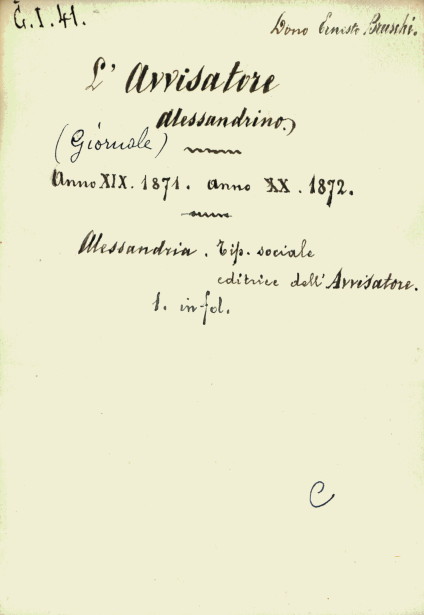 G.I.41.
Dono Ernesto Bruschi.
L' Avvisatore
Alessandrino.
(Giornale)
Anno XIX. 1871. anno XX. 1872.
Alessandria. Tip. sociale
editrice dell' Avvisatore.
1. in fol.
C